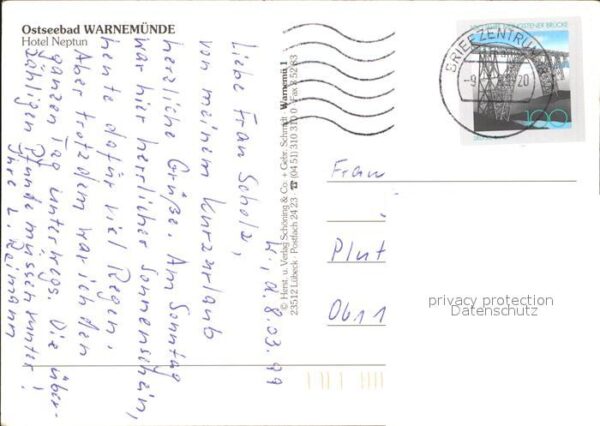 Ostseebad WARNEMÜNDE
Hotel Neptun
W., d. 8.03.99
Liebe Frau Scholz,
von meinem Kurzurlaub
herzliche Grüße. Am Sonntag
war hier herrlicher Sonnenschein,
heute dafür viel Regen.
Aber trotzdem war ich den
ganzen Tag unterwegs. Die über-
zähligen Pfunde müssen runter!
Ihre L. Reimann
© Herst. u. Verlag Schöning & Co. + Gebr. Schmidt Warnemü 1
23512 Lübeck · Postfach 24 23 · ☎ (04 51) 310 310
BRIEFZENTRUM
-9.
20
BRÜCKE
100
Frau
Plut
Ob 11
privacy protection
Datenschutz